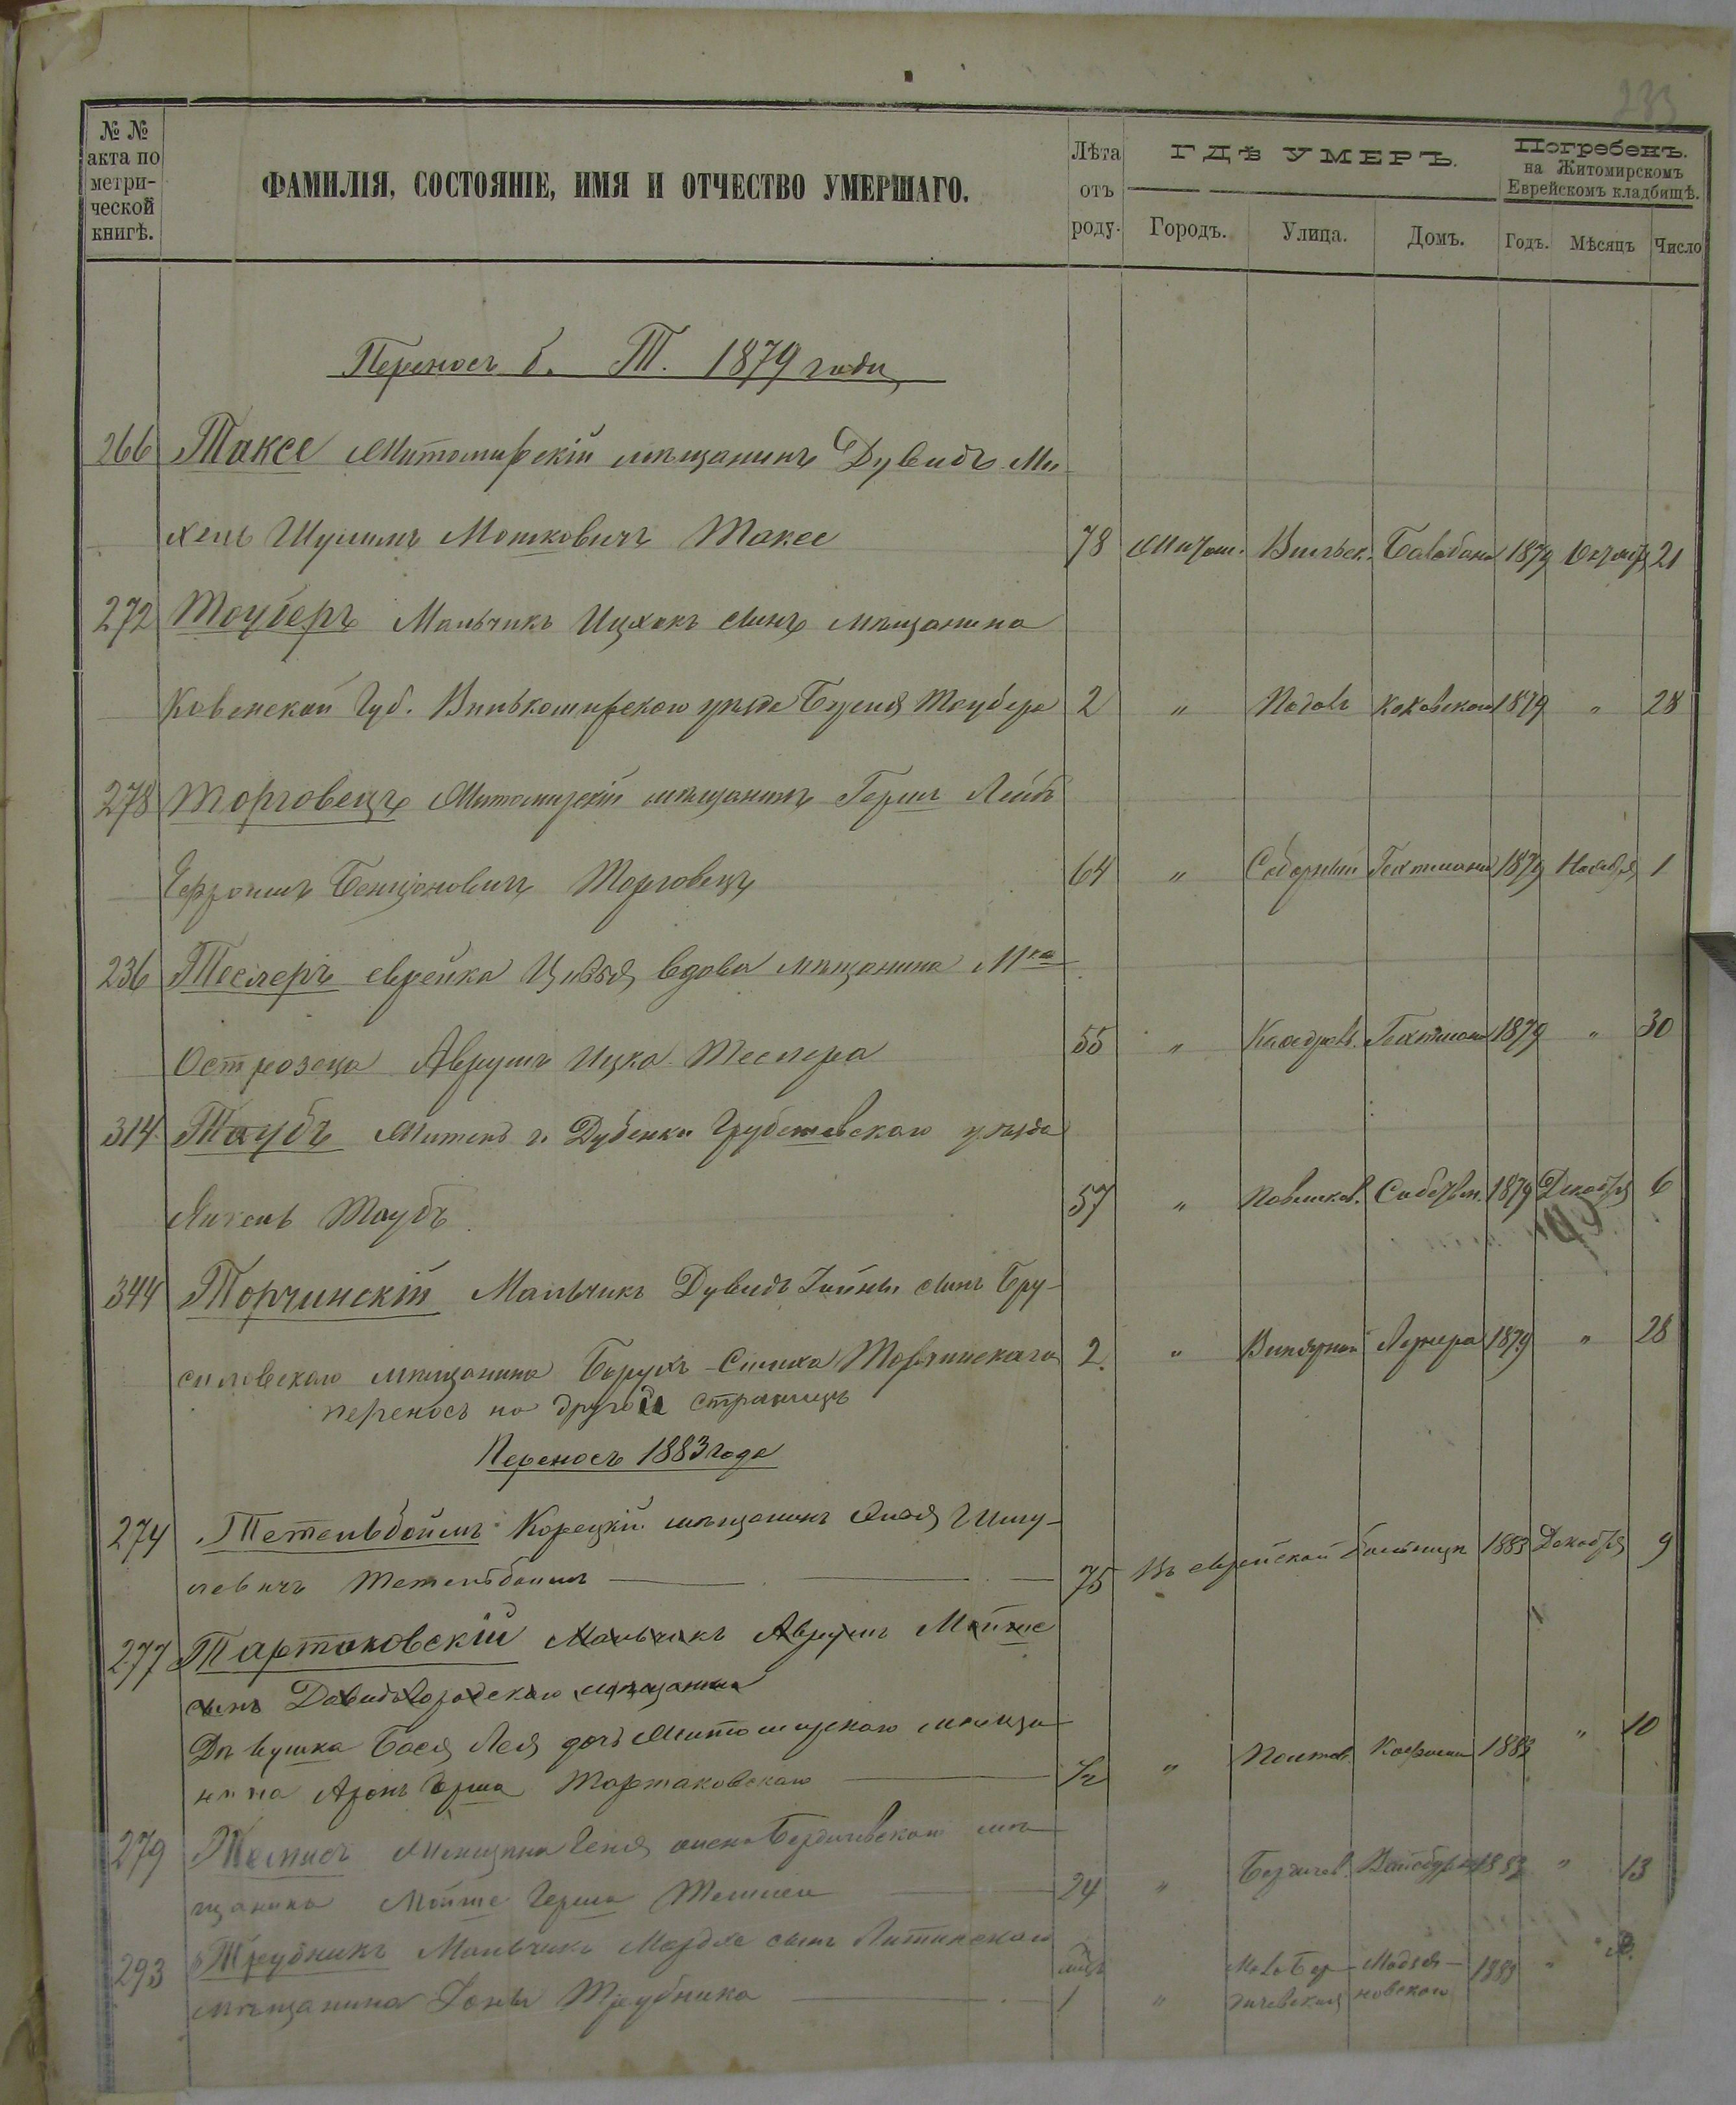 233
№ №
акта по
метри-
ческой
книгѣ.
ФАМИЛІЯ, СОСТОЯНІЕ, ИМЯ И ОТЧЕСТВО УМЕРШАГО.
Лѣта
отъ
роду.
ГДѢ УМЕРЪ.
Городъ. Улица. Домъ.
Погребенъ.
на Житомирскомъ
Еврейскомъ кладбищѣ.
Годъ. Мѣсяцъ Число
Переносъ б. Т. 1879 года
266 Таксе Житомирскій мѣщанинъ Дувидъ Ми
хель Шулимъ Мошковичъ Таксе 78 Житом. Вильск. Балабана 1879 Октября 21
272 Тауберъ Мальчикъ Ицхакъ сынъ мѣщанина
Ковенской Губ. Вилькомирскаго уѣзда Таубера 2 " Подолъ 1879 " 28
278 Торговецъ Житомирскій мѣщанинъ Гершъ Лейбъ
Бенціоновичъ Торговецъ 64 " Соборный Гехтмана 1879 Ноября 1
236 Теслеръ еврейка Цивья вдова мѣщанина М-ка
Острозеца Аврумъ Ицка Теслера 55 " Кафедров. Гехтмана 1879 " 30
314 Таубъ Житель г. Дубенки Грубешевскаго уѣзда
Янкель Таубъ 57 " 1879 Декабря 6
344 Торчинскій Мальчикъ Дувидъ сынъ Бру-
силовскаго мѣщанина Борухъ Симха Торчинскаго 2. " Винярной 1879 " 28
переносъ на другой страницѣ
Переносъ 1883 года
274 Тетельбоймъ Корецкій мѣщанинъ Шму-
левичъ Тетельбоймъ 75 Въ еврейской больницѣ 1883 Декабря 9
277 Тартаковскій Мальчикъ Аврумъ Мойше
сынъ Давидгородскаго мѣщанина
Дѣвушка Бася Лея дочь Житомирскаго мѣща
нина Аронъ Герша Тартаковскаго 1/2 " 1883 " 10
279 Женщина Геня жена Бердичевскаго мѣ
щанина Мойше Герша 24 " Бердичев. 1883 " 13
293 Трубникъ Мальчикъ Мордхе сынъ Литинскаго
мѣщанина Іоны Трубника 1 " Мало Бер-
дичевская 1883 "